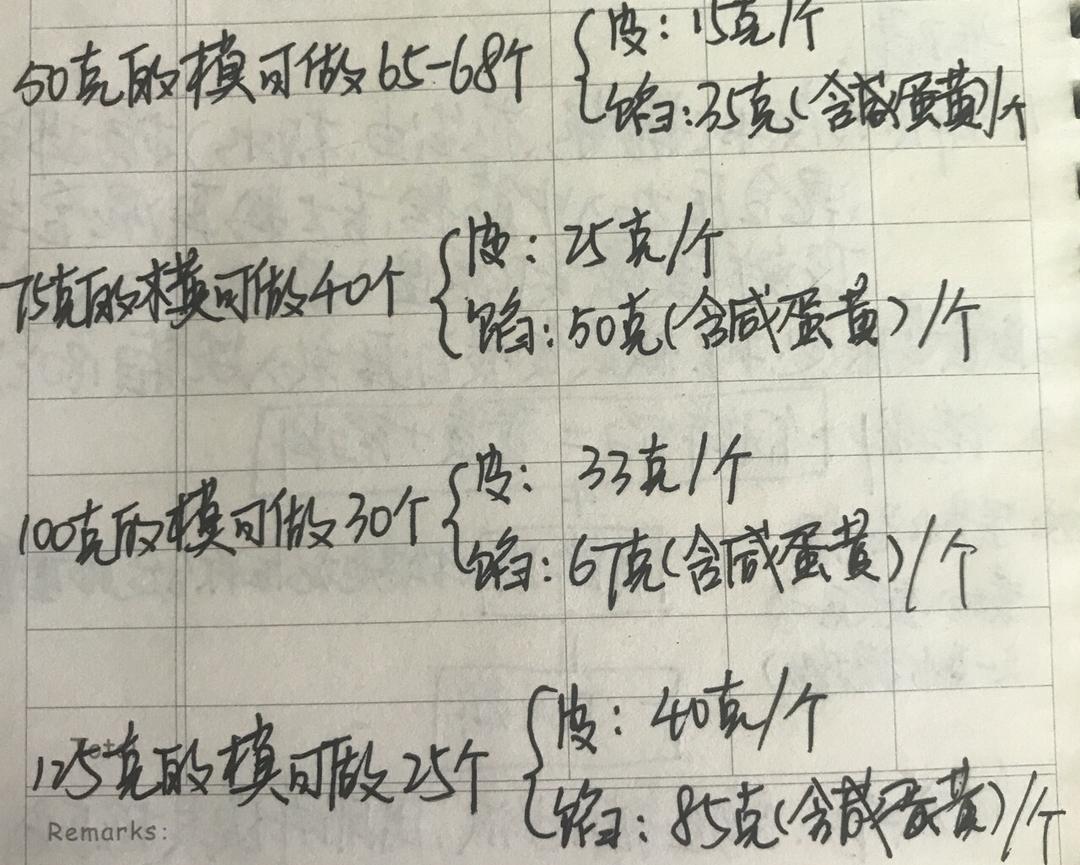 皮：15克/个
50克的模可做65-68个
馅：35克(含咸蛋黄)/个
皮：25克/个
75克的模可做40个
馅：50克(含咸蛋黄)/个
皮：33克/个
100克的模可做30个
馅：67克(含咸蛋黄)/个
皮：40克/个
125克的模可做25个
馅：85克(含咸蛋黄)/个
Remarks: